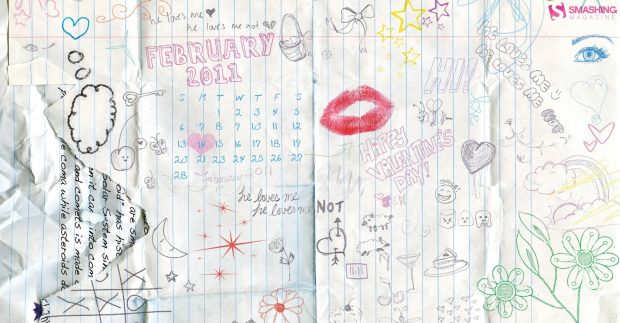 he loves me
he loves me not
FEBRUARY
2011
S M T W T F S
1 2 3 4 5
6 7 8 9 10 11 12
13 14 15 16 17 18 19
20 21 22 23 24 25 26
28
February 2011
he loves me
he loves me
NOT
HI!
HAPPY
VALENTINE'S
DAY!
SMASHING
MAGAZINE
HE LOVES ME
HE LOVES ME
NOT
are sim
has hist
Solar System sin
can into com
and comets is made
coma while asteroids do